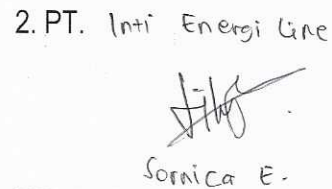 2. PT. Inti Energi Line
Sornica E.